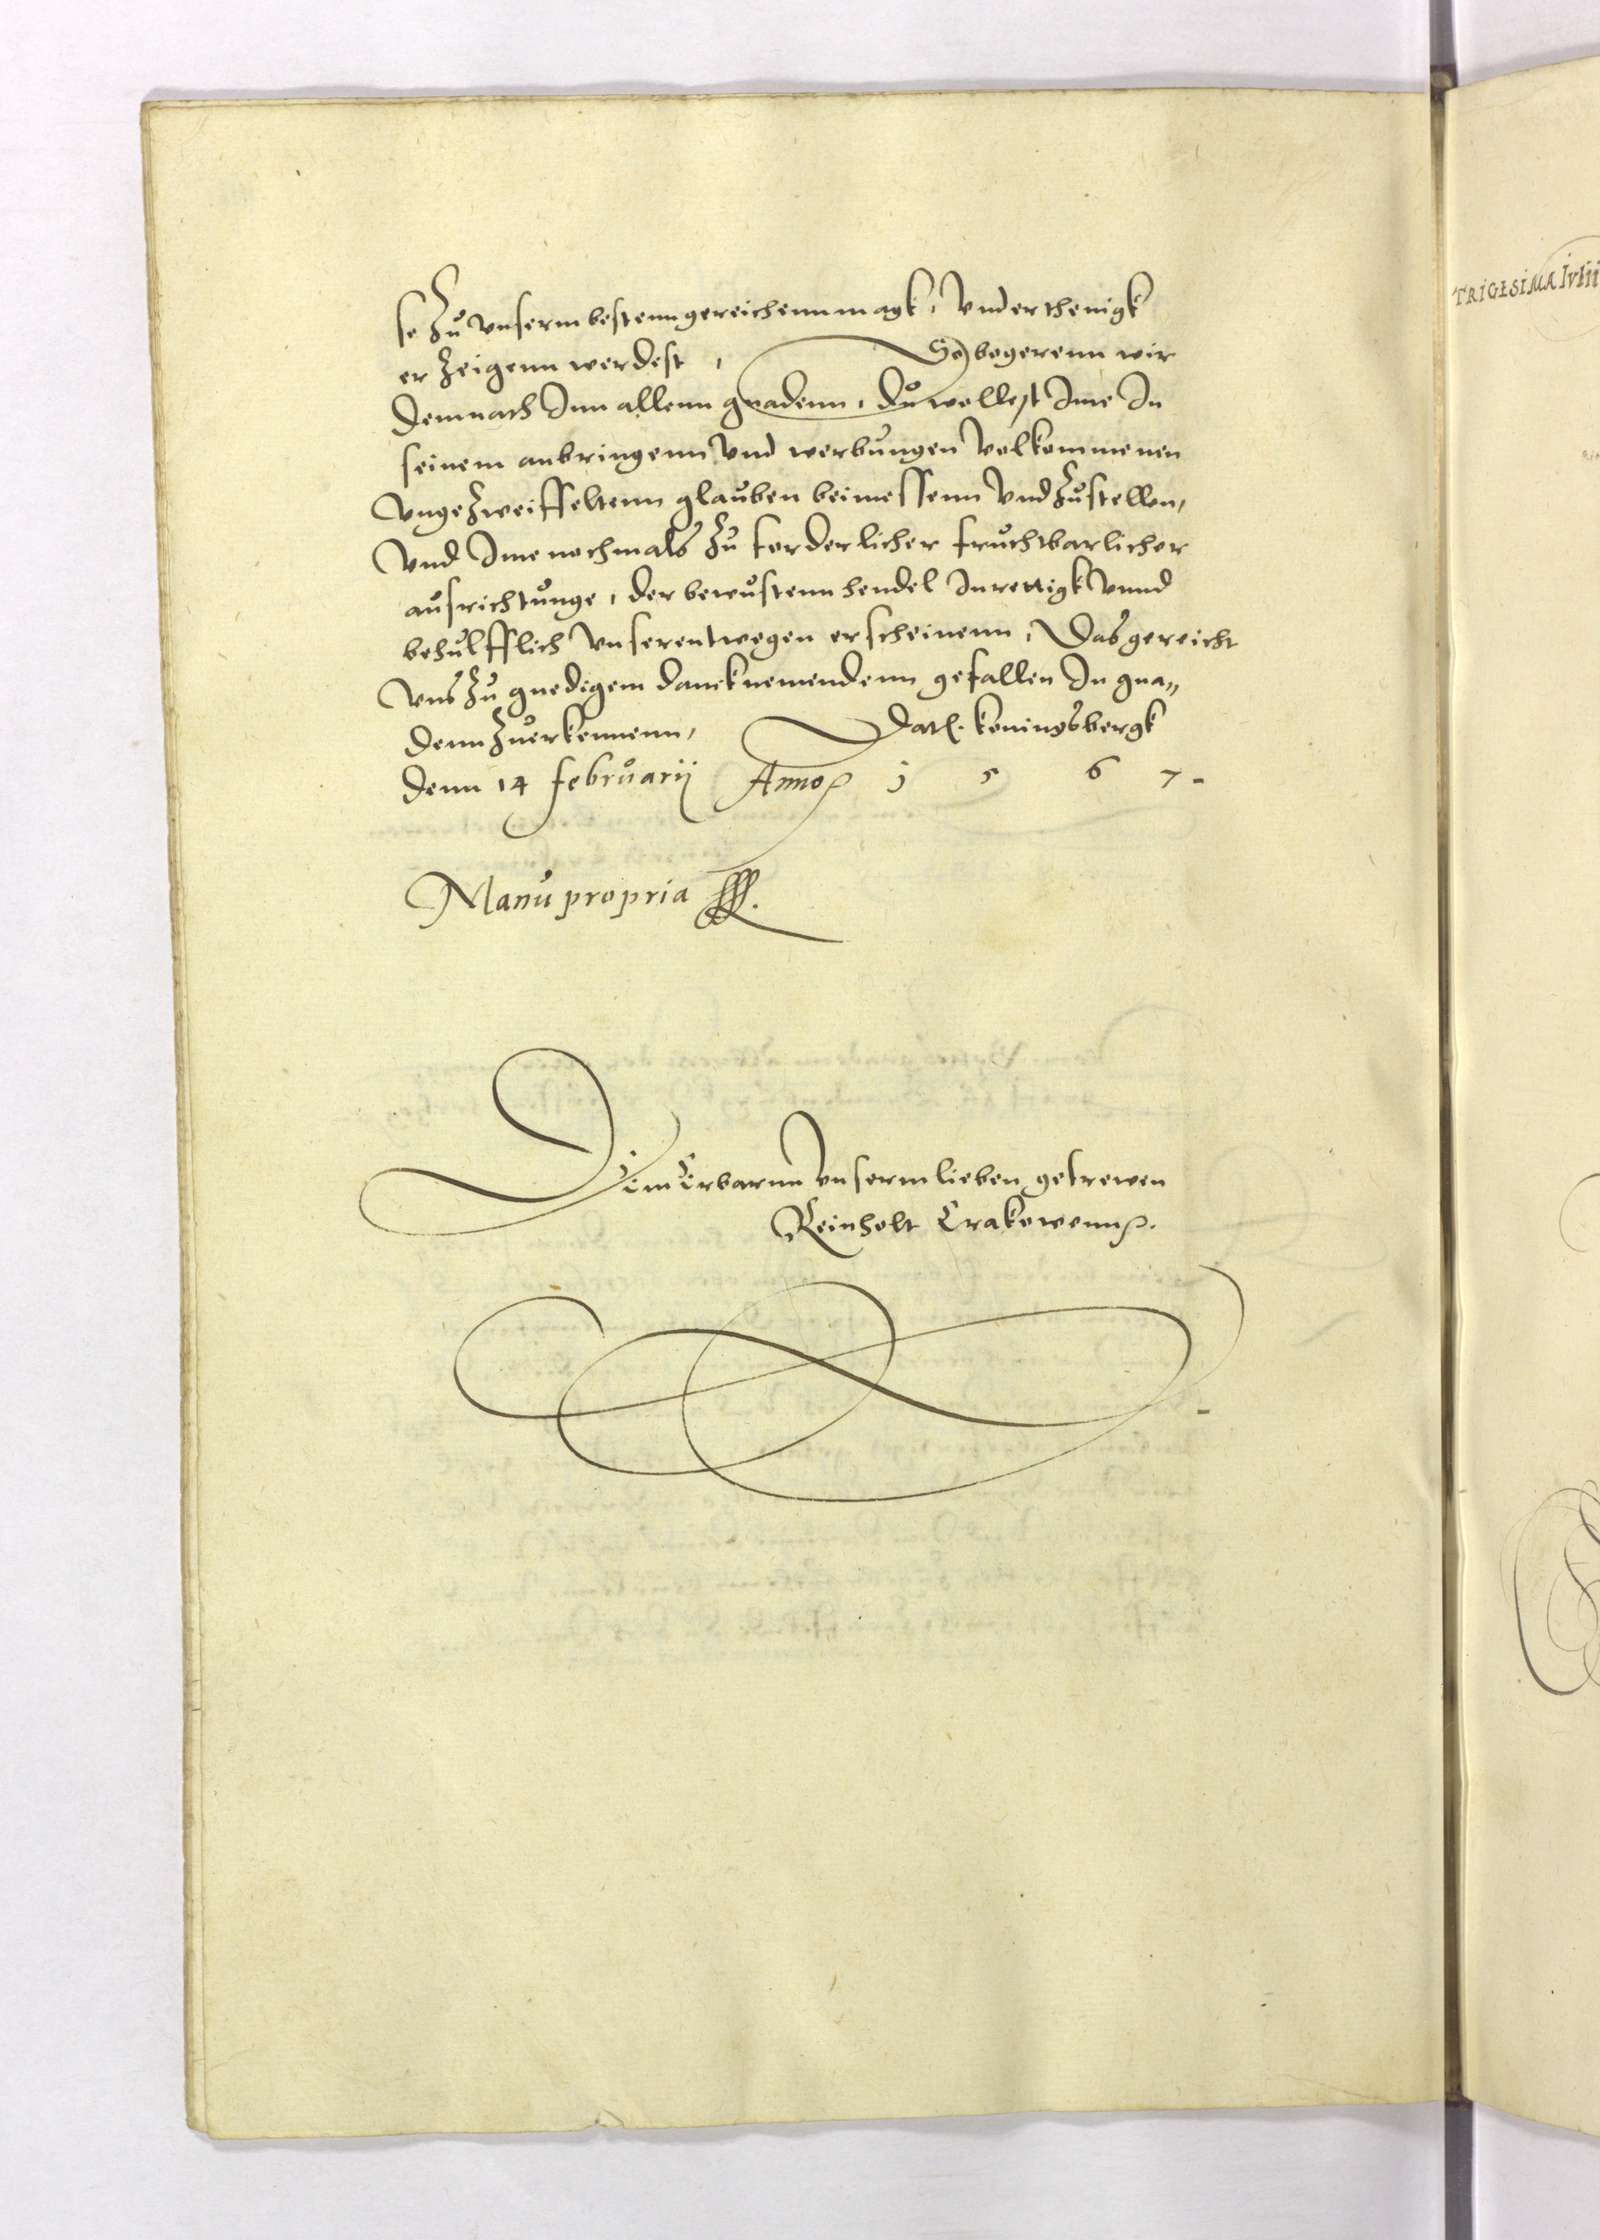 se Zu vnserm bestenn gereichenn magk, Vnderthenigk
erZeigenn werdest, So begerenn wir
demnach Inn allenn gnadenn, du wollest Ime In
seinem anbringenn Vnd werbungen Volkommenen
VngeZweiffeltenn glauben beimessenn Vnd Zustellen,
Vnd Ime nochmals Zu forderlicher fruchtbarlicher
ausrichtunge, der bewustenn hendel Inrettigk Vnnd
behulfflich Vnserentwegen erscheinenn, Das gereicht
Vns Zu gnedigem dancknemendenn gefallen In gna„
denn Zuerkennenn, Datl. Koningsbergk
denn 14 februarij Anno 1 5 6 7.
Manu propria
Dem Erbarnn Vnserm lieben getrewen
Reinholt Crakowenn.
TRIGESIMA